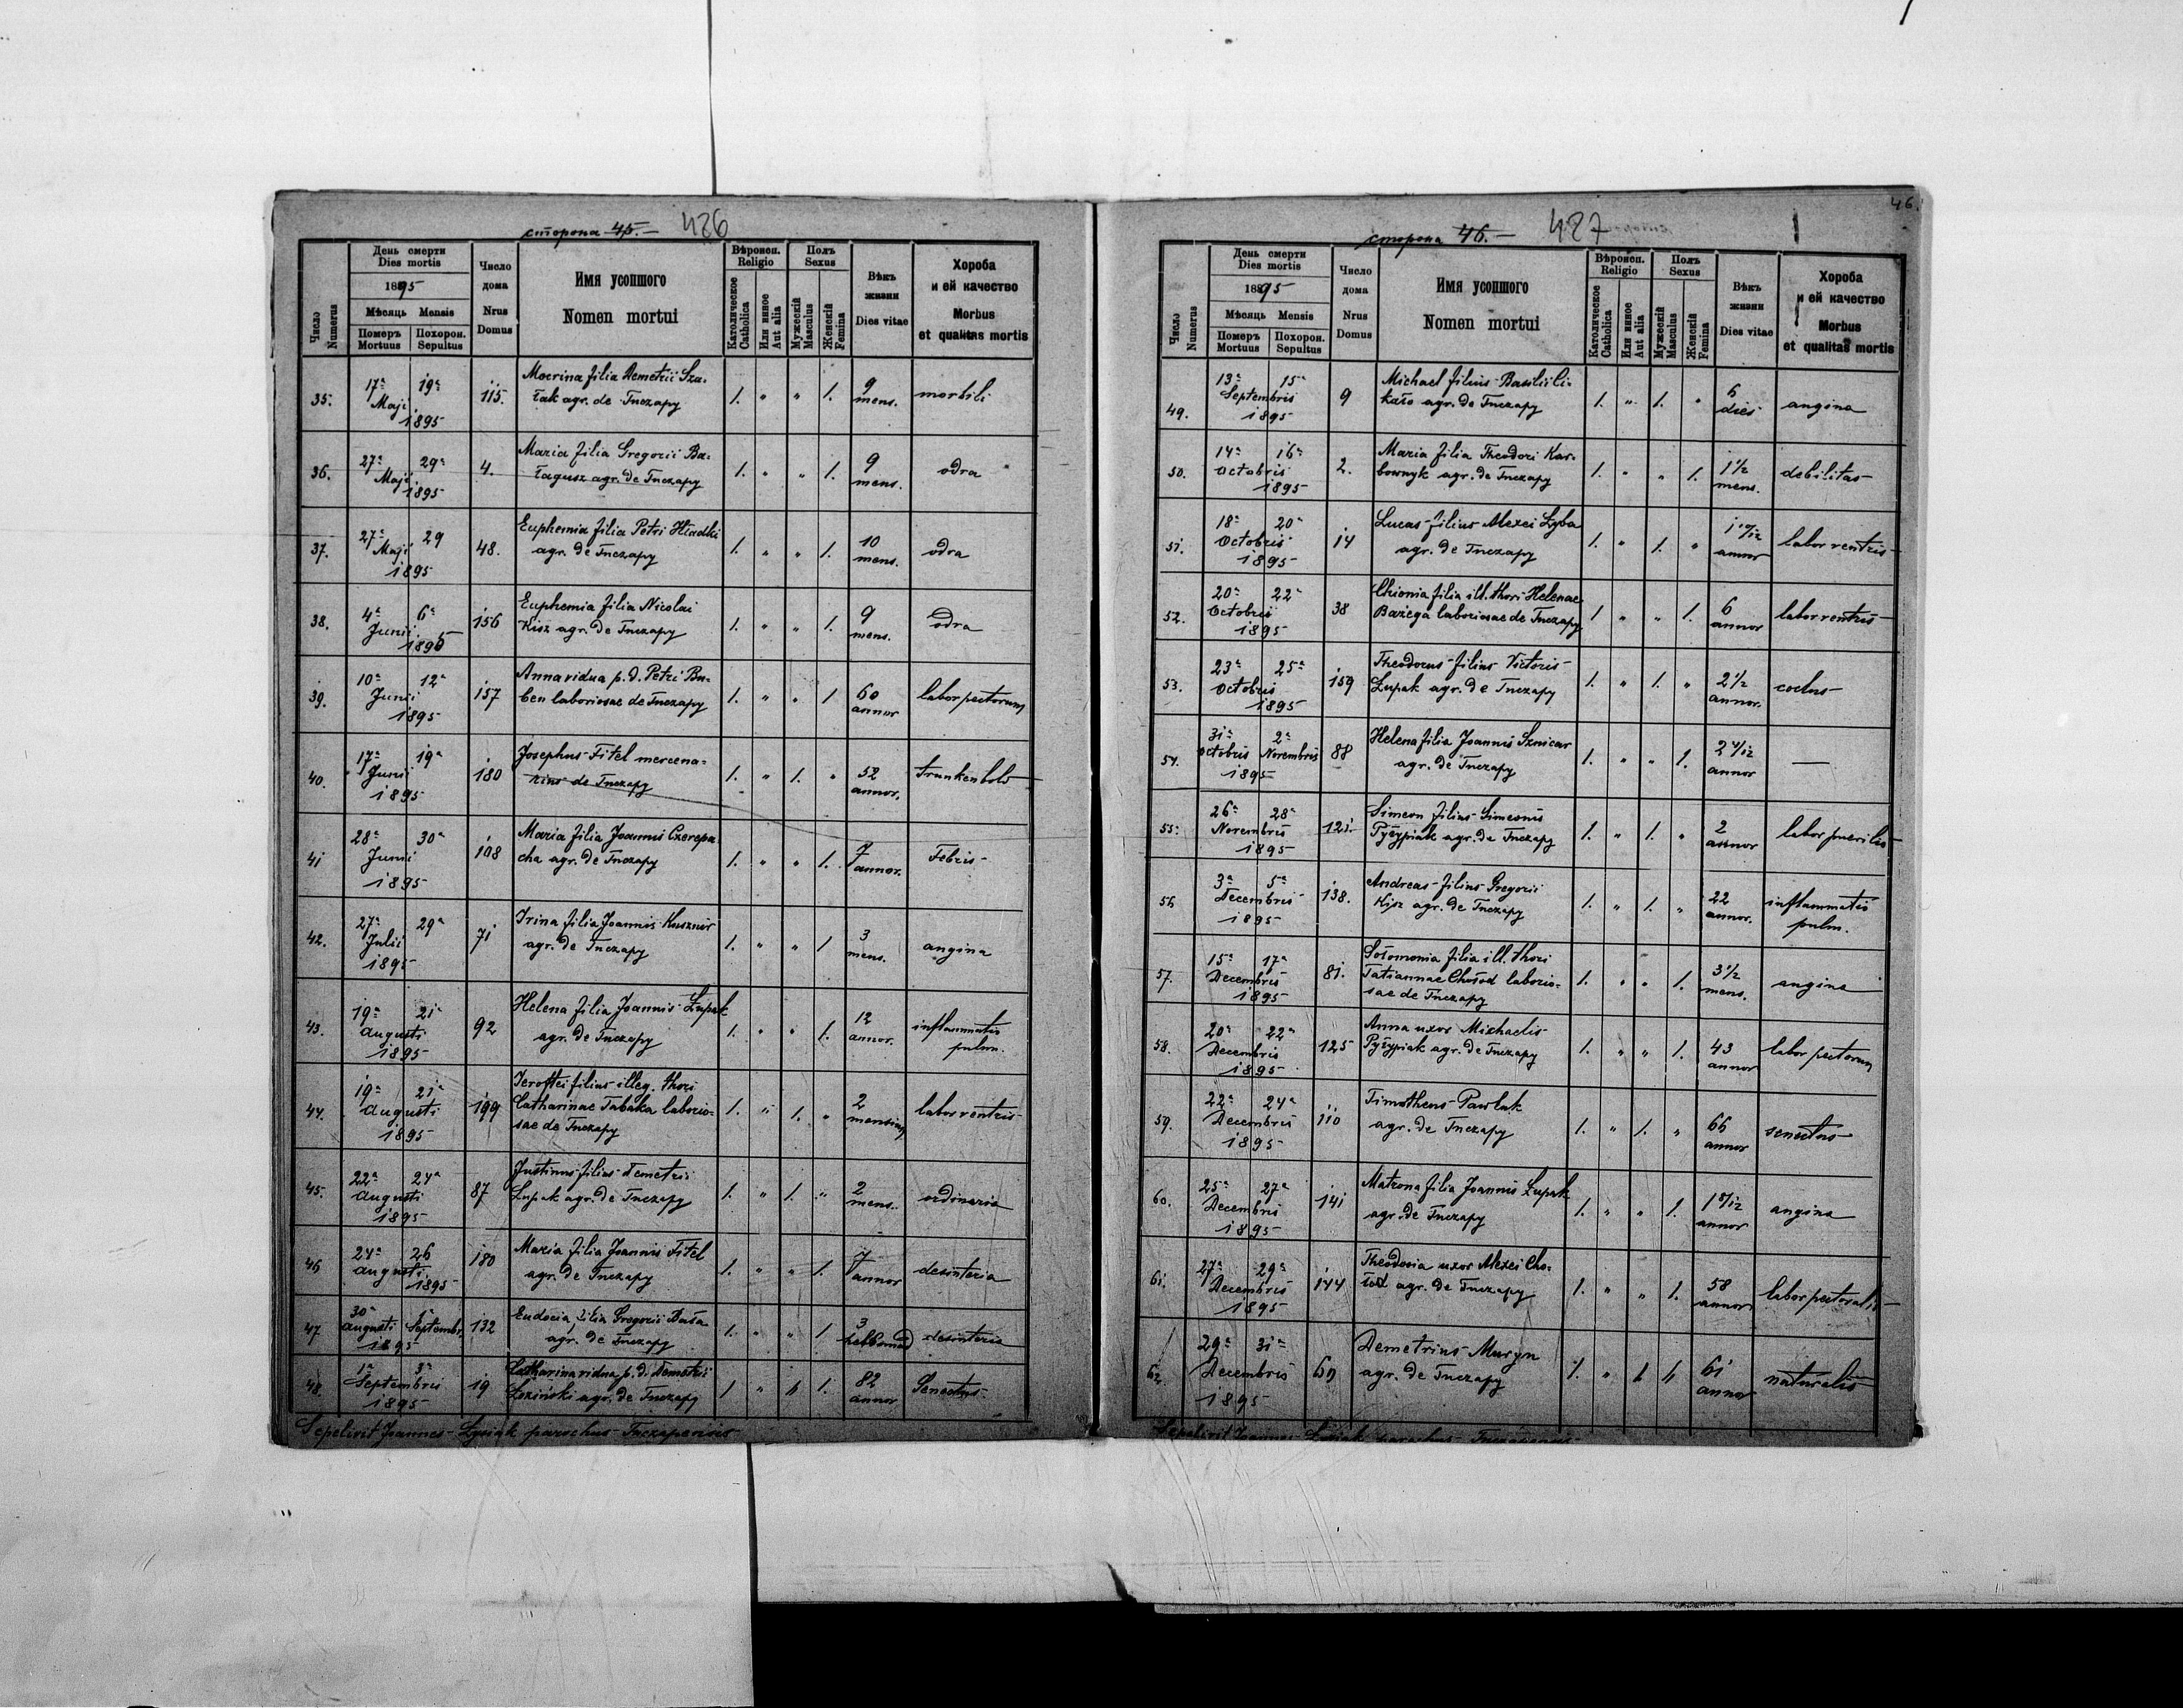 сторона 45.— 426
Число Numerus
День смерти Dies mortis
1895
Мѣсяць Mensis
Померъ Mortuus
Похорон. Sepultus
Число дома Nrus Domus
Имя усопшого
Nomen mortui
Вѣроисп. Religio
Католическое Catholica
Или инное Aut alia
Полъ Sexus
Мужескій Masculus
Женскій Femina
Вѣкъ жизни Dies vitae
Хороба и ей качество
Morbus et qualitas mortis
35. 17ª 19ª Maji 1895 115. Macrina filia Demetrii Sza-
łak agr. de Tuczapy 1. " " 1. 9 mens. morbili
36. 27ª 29ª Maji 1895 4. Maria filia Gregorii Ba-
łagusz agr. de Tuczapy 1. " " 1. 9 mens. odra
37. 27ª 29 Maji 1895 48. Euphemia filia Petri Hladki
agr. de Tuczapy 1. " " 1. 10 mens. odra
38. 4ª 6ª Junii 1895 156 Euphemia filia Nicolai
Kisz agr. de Tuczapy 1. " " 1. 9 mens. odra
39. 10ª 12ª Junii 1895 157 Anna vidua p. d. Petri Bu-
ben laboriosae de Tuczapy 1. " " 1 60 annor labor pectorum
40. 17ª 19ª Junii 1895 180 Josephus Fitel mercena-
rius de Tuczapy 1. " 1. " 52 annor. trunkenbold
41 28ª 30ª Junii 1895 108 Maria filia Joannis Czerepa-
cha agr. de Tuczapy 1. " " 1. 7 annor. Febris
42. 27ª 29ª Julii 1895 71 Irina filia Joannis Kusznir
agr. de Tuczapy 1. " " 1 3 mens. angina
43. 19ª 21ª Augusti 1895 92 Helena filia Joannis Łupak
agr. de Tuczapy 1. " " 1. 12 annor. inflammatio pulm.
44. 19ª 21ª Augusti 1895 199 filius illeg. thori
Catharinae Tabaka laborio-
sae de Tuczapy 1. " 1. " 2 mensium labor ventris
45. 22ª 24ª Augusti 1895 87 Justinus filius Demetrii
Łupak agr. de Tuczapy 1. " 1. " 2 mens. ordinaria
46 24ª 26 Augusti 1895 180 Maria filia Joannis Fitel
agr. de Tuczapy 1. " " 1. 7 annor desinteria
47 30ª Augusti 1ª Septembr. 1895 132 Eudocia filia Gregorii
agr. de Tuczapy 1. " " 1 3 hebdomad desinteria
48. 1ª 3ª Septembris 1895 19 Catharina vidua p. d. Demetrii
agr. de Tuczapy 1 " 1. 82 annor Senectus
Sepelivit Joannes Łysiak parochus Tuczapensis
46.
сторона 46.— 427
Число Numerus
День смерти Dies mortis
1895
Мѣсяць Mensis
Померъ Mortuus
Похорон. Sepultus
Число дома Nrus Domus
Имя усопшого
Nomen mortui
Вѣроисп. Religio
Католическое Catholica
Или инное Aut alia
Полъ Sexus
Мужескій Masculus
Женскій Femina
Вѣкъ жизни Dies vitae
Хороба и ей качество
Morbus et qualitas mortis
49. 13ª 15ª Septembris 1895 9 Michael filius Basilii Li-
kało agr. de Tuczapy 1. " 1. " 6 dies angina
50. 14ª 16ª Octobris 1895 2. Maria filia Theodori Kar-
bownyk agr. de Tuczapy 1. " " 1. 1½ mens. debilitas
51. 18ª 20ª Octobris 1895 14 Lucas filius Alexei Zyba
agr. de Tuczapy 1. " 1. " 1 10/12 annor labor ventris
52. 20ª 22ª Octobris 1895 38 Chionia filia ill. thori Helenae
laboriosae de Tuczapy 1 " " 1. 6 annor labor ventris
53. 23ª 25ª Octobris 1895 159 Theodorus filius Victoris
Łupak agr. de Tuczapy 1. " 1. " 2½ annor. coclus
54. 31ª Octobris 2ª Novembris 1895 88 Helena filia Joannis Sznicar
agr. de Tuczapy 1. " " 1. 2 4/12 annor —
55. 26ª 28ª Novembris 1895 121. Simeon filius Simeonis
Pyłypiak agr. de Tuczapy 1. " 1. " 2 annor labor puerilis
56 3ª 5ª Decembris 1895 138. Andreas filius Gregorii
Kisz agr. de Tuczapy 1. " 1. " 22 annor. inflammatio pulm.
57. 15ª 17ª Decembris 1895 81. Sołomonia filia ill. thori
Tatiannae Chołod laborio-
sae de Tuczapy 1. " " 1. 3½ mens. angina
58. 20ª 22ª Decembris 1895 125 Anna uxor Michaelis
Pyłypiak agr. de Tuczapy 1. " " 1. 43 annor labor pectorum
59. 22ª 24ª Decembris 1895 110 Timotheus Pawluk
agr. de Tuczapy 1. " 1. " 66 annor senectus
60. 25ª 27ª Decembris 1895 141 Matrona filia Joannis Łupak
agr. de Tuczapy 1. " " 1. 1 8/12 annor angina
61. 27ª 29ª Decembris 1895 144 Theodosia uxor Alexei Cho-
łod agr. de Tuczapy 1. " " 1. 58 annor labor pectoralis
62. 29ª 31ª Decembris 1895 60 Demetrius Maryn
agr. de Tuczapy 1. " 1 " 61 annor naturalis
Sepelivit Joannes Łysiak parochus Tuczapensis